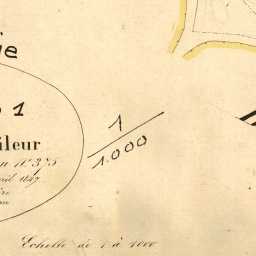 ie
1
ileur
N° 375
1847
1
1.000
Echelle de 1 à 1000